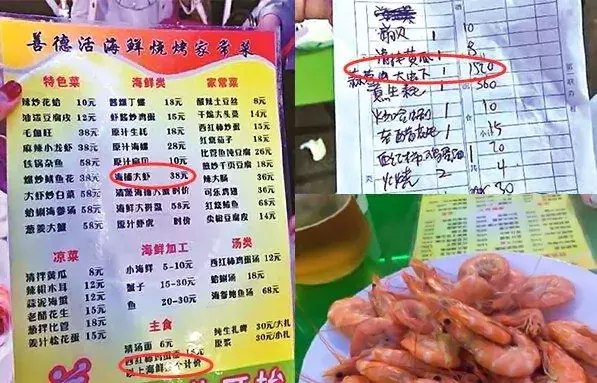 善德活海鲜烧烤家常菜
特色菜
辣炒花蛤 10元
油泼豆腐皮 12元
毛血旺 38元
麻辣小龙虾 38元
铁锅杂鱼 58元
爆炒鱿鱼花 38元
大虾炒白菜 58元
蛤蜊海参汤 58元
葱姜大蟹 58元
海鲜类
酱爆丁螺 18元
虾酱炒鸡蛋 15元
原汁生蚝 18元
原汁海螺 28元
原汁扇贝 10元
海捕大虾 38元
清蒸海捕大蟹 时价
海鲜大拼盘 58元
原汁虾虎 时价
家常菜
酸辣土豆丝 8元
干煸大头菜 14元
西红柿炒蛋 15元
红烧茄子 18元
比管鱼炖豆腐 26元
管炒干页豆腐 18元
辣大肠 36元
可乐鸡翅 36元
红烧鲅鱼 68元
尖椒豆腐皮 14元
凉菜
清拌黄瓜 8元
辣根木耳 12元
蒜泥海蜇 12元
老醋花生 12元
葱拌比管 18元
姜汁松花蛋 18元
海鲜加工
小海鲜 5-10元
蟹子 15-30元
鱼 20-30元
汤类
西红柿鸡蛋汤 12元
蛤蜊汤 18元
海参鲍鱼汤 68元
主食
清汤面 6元
西红柿鸡蛋面 15元
以上海鲜 个计价
纯生扎啤 30元/大扎
原浆 30元/小扎
扇贝 1 10
黄瓜 1 8
蒜蓉 大虾 1 1520
1 560
1 10
1 15
1 20
火烧 2 4
30